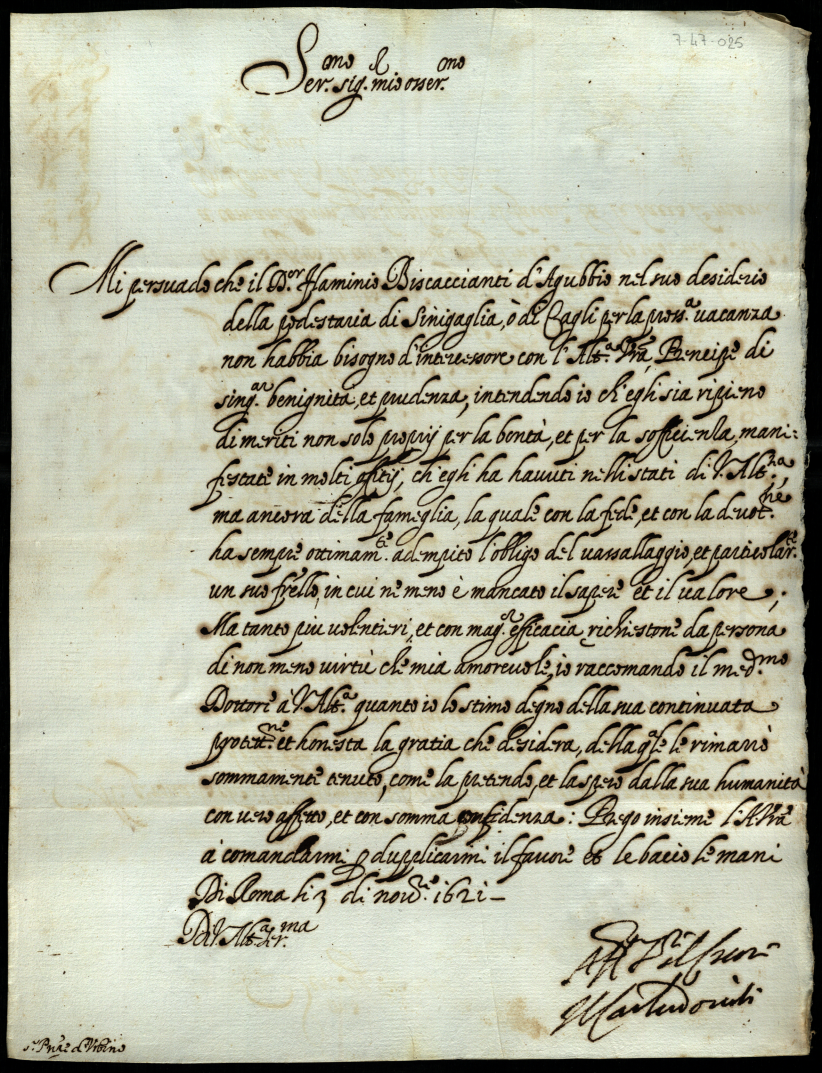 7-47-025
Ser.mo sig.r mio osser.mo
Mi persuado che il D.or Flaminio Biscaccianti d'Agubbio nel suo desiderio
della podestaria di Sinigaglia, ò di Cagli per la pross.a vacanza
non habbia bisogno d'intercessore con l'Alt.a Vra, Prencipe di
sing.ar benignità, et prudenza, intendendo io ch'egli sia ripieno
di meriti non solo proprij per la bontà, et per la sofficienza, mani=
festate in molti offitij, ch'egli ha havuti nelli stati di V. Alt.za,
ma ancora della fameglia, la quale con la fede, et con la devot.ne
ha sempre ottimam.te adempito l'obligo del vassallaggio, et particolar.te
un suo frello, in cui ne meno è mancato il sapere et il valore;
Ma tanto più volentieri, et con mag.or efficacia, richiestone da persona
di non meno virtù che mia amorevole, io raccomando il med.mo
Dottore à V. Alt.a quanto io lo stimo degno della sua continuata
protett.ne et honesta la gratia che desidera, della qle le rimarrò
sommamente tenuto, come la pretendo, et la spero dalla sua humanità
con vero affetto, et con somma confidenza: Prego insieme l'A. Vra
à comandarmi p duplicarmi il favore et le bacio le mani
Di Roma li 3 di nov.re 1621 -
Di V. Alt.a Ser.ma
Aff.mo
s.r Pnpe d'Vrbino